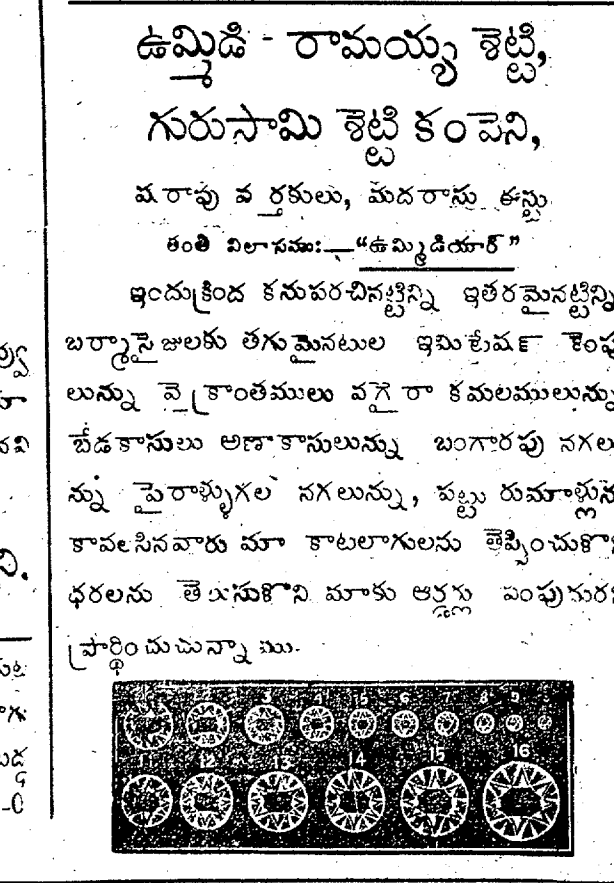 ఉమ్మిడి - రామయ్య శెట్టి,
గురుసామి శెట్టి కంపెని,
షరాపు వర్తకులు, మదరాసు ఈస్టు
తంతి విలాసము:—“ఉమ్మిడియార్”
ఇందుక్రింద కనుపరచినట్టిన్ని ఇతరమైనట్టిన్ని
బర్మాసైజులకు తగుమైనటుల ఇమిటేషణ్ కెంపు
లున్ను వైక్రాంతములు వగైరా కమలములున్ను
బేడకాసులు అణాకాసులున్ను బంగారపు నగలు
న్ను పైరాళ్ళుగల నగలున్ను, పట్టు రుమాళ్లున్ను
కావలసినవారు మా కాటలాగులను తెప్పించుకొని
ధరలను తెలుసుకొని మాకు ఆర్డర్లు పంపుకుర
ప్రార్థించుచున్నాము.
1 2 3 4 5 6 7 8 9
11 12 13 14 15 16